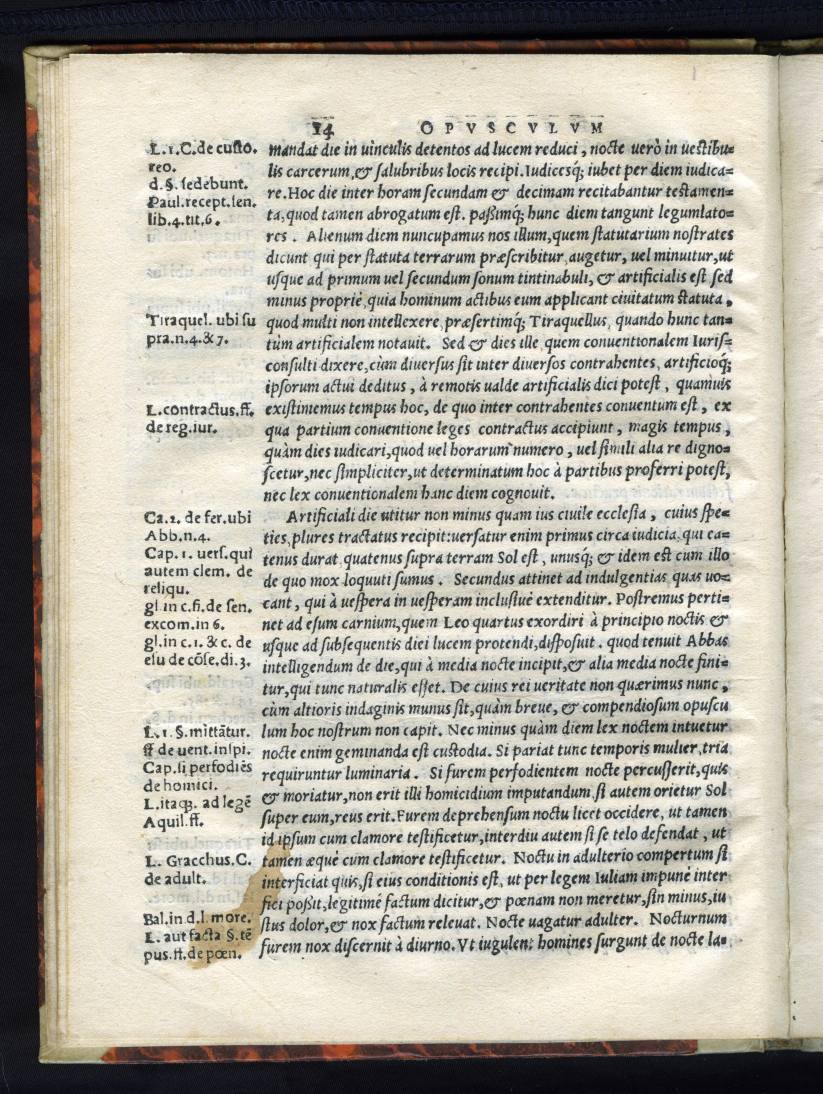 14 OPVSCVLVM
L.1.C.de custo.
reo.
d.§. sedebunt.
Paul.recept.sen.
lib.4.tit.6.
Tiraquel. ubi su
pra.n.4.&7.
L.contractus.ff.
de reg.iur.
Ca.2. de fer.ubi
Abb.n.4.
Cap. 1. uers.qui
autem clem. de
reliqu.
gl.in c.fi.de sen.
excom.in 6.
gl.in c.1. & c. de
esu de cõse.di.3.
L.1.§.mittãtur.
ff de uent.inspi.
Cap.si perfodiẽs
de homici.
L.itaq;. ad legẽ
Aquil.ff.
L. Gracchus.C.
de adult.
Bal.in d.l. more.
L. aut facta §.tẽ
pus.ff.de pœn.
mandat die in uinculis detentos ad lucem reduci, nocte uerò in uestibu=
lis carcerum,& salubribus locis recipi.Iudicesq́; iubet per diem iudica=
re.Hoc die inter horam secundam & decimam recitabantur testamen=
ta,quod tamen abrogatum est. paßimq́; hunc diem tangunt legumlato=
res . Alienum diem nuncupamus nos illum,quem statutarium nostrates
dicunt qui per statuta terrarum præscribitur,augetur, uel minuitur,ut
usque ad primum uel secundum sonum tintinabuli, & artificialis est sed
minus propriè,quia hominum actibus eum applicant ciuitatum statuta,
quod multi non intellexere,præsertimq́; Tiraquellus, quando hunc tan=
tùm artificialem notauit. Sed & dies ille quem conuentionalem Iuris=
consulti dixere,cùm diuersus sit inter diuersos contrahentes, artificioq́;
ipsorum actui deditus, à remotis ualde artificialis dici potest, quamuis
existimemus tempus hoc, de quo inter contrahentes conuentum est, ex
qua partium conuentione leges contractus accipiunt, magis tempus,
quàm dies iudicari,quod uel horarum numero, uel simili alia re digno=
scetur,nec simpliciter,ut determinatum hoc à partibus proferri potest,
nec lex conuentionalem hanc diem cognouit.
Artificiali die utitur non minus quam ius ciuile ecclesia, cuius spe=
ties,plures tractatus recipit:uersatur enim primus circa iudicia.qui ea=
tenus durat quatenus supra terram Sol est, unusq́; & idem est cum illo
de quo mox loquuti sumus. Secundus attinet ad indulgentias quas uo=
cant, qui à uespera in uesperam inclusiuè extenditur. Postremus perti=
net ad esum carnium,quem Leo quartus exordiri à principio noctis &
usque ad subsequentis diei lucem protendi,disposuit. quod tenuit Abbas
intelligendum de die,qui à media nocte incipit,& alia media nocte fini=
tur,qui tunc naturalis esset. De cuius rei ueritate non quærimus nunc,
cùm altioris indaginis munus sit,quàm breue, & compendiosum opuscu
lum hoc nostrum non capit. Nec minus quàm diem lex noctem intuetur
nocte enim geminanda est custodia. Si pariat tunc temporis mulier,tria
requiruntur luminaria. Si furem perfodientem nocte percusserit,quis
& moriatur,non erit illi homicidium imputandum,si autem orietur Sol
super eum,reus erit.Furem deprehensum noctu licet occidere, ut tamen
id ipsum cum clamore testificetur,interdiu autem si se telo defendat, ut
tamen æquè cum clamore testificetur. Noctu in adulterio compertum si
interficiat quis,si eius conditionis est, ut per legem Iuliam impunè inter
fici poßit,legitimè factum dicitur,& pœnam non meretur,sin minus,iu
stus dolor,& nox factum releuat. Nocte uagatur adulter. Nocturnum
furem nox discernit à diurno.Vt iugulent homines surgunt de nocte la=